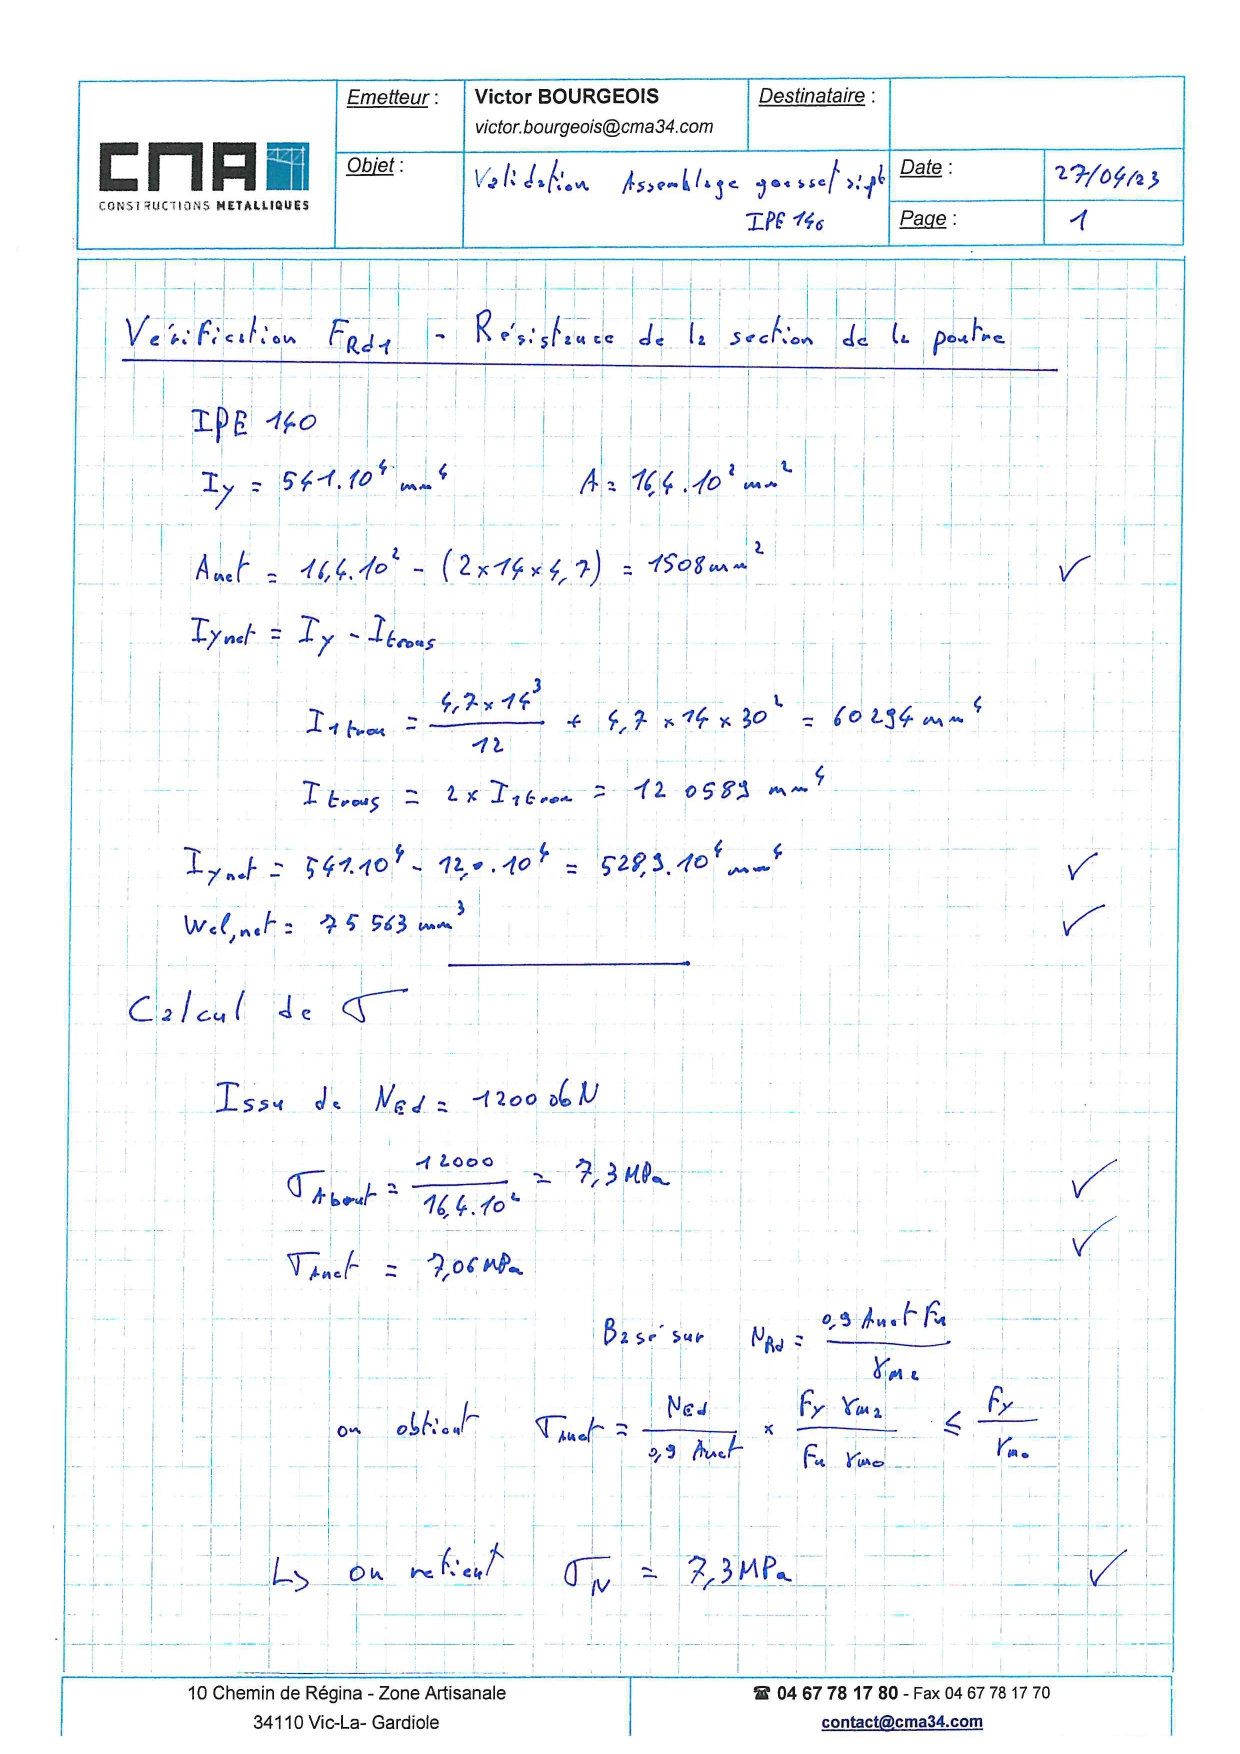 Emetteur : Victor BOURGEOIS Destinataire :
victor.bourgeois@cma34.com
CMA
CONSTRUCTIONS METALLIQUES
Objet : Validation Assemblage gousset Date : 27/04/23
IPE 140 Page : 1
Vérification FRd1 - Résistance de la section de la poutre
IPE 140
Iy = 541.10⁴ mm⁴ A = 16,4.10² mm²
Anet = 16,4.10² - (2x14x4,7) = 1508 mm² ✓
Iynet = Iy - Itrous
I1trou = 4,7x14³/12 + 4,7x14x30² = 60294 mm⁴
Itrous = 2x I1trou = 120589 mm⁴
Iynet = 541.10⁴ - 12,0.10⁴ = 528,9.10⁴ mm⁴ ✓
Wel,net = 75 563 mm³ ✓
Calcul de σ
Issu de NEd = 12000 N
σAbrut = 12000/16,4.10² = 7,3 MPa ✓
σAnet = 7,06 MPa ✓
Basé sur NRd = 0,9 Anet Fu/γm2
on obtient σAnet = NEd/0,9 Anet x Fy γm2/Fu γm0 ≤ Fy/γm0
↳ on retient σN = 7,3 MPa ✓
10 Chemin de Régina - Zone Artisanale ☎ 04 67 78 17 80 - Fax 04 67 78 17 70
34110 Vic-La- Gardiole contact@cma34.com